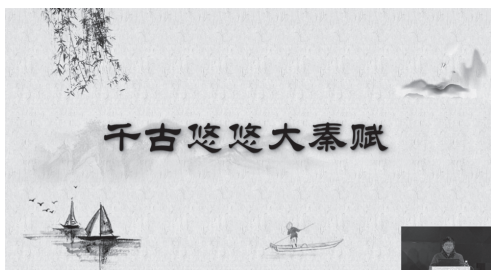 千古悠悠大秦赋